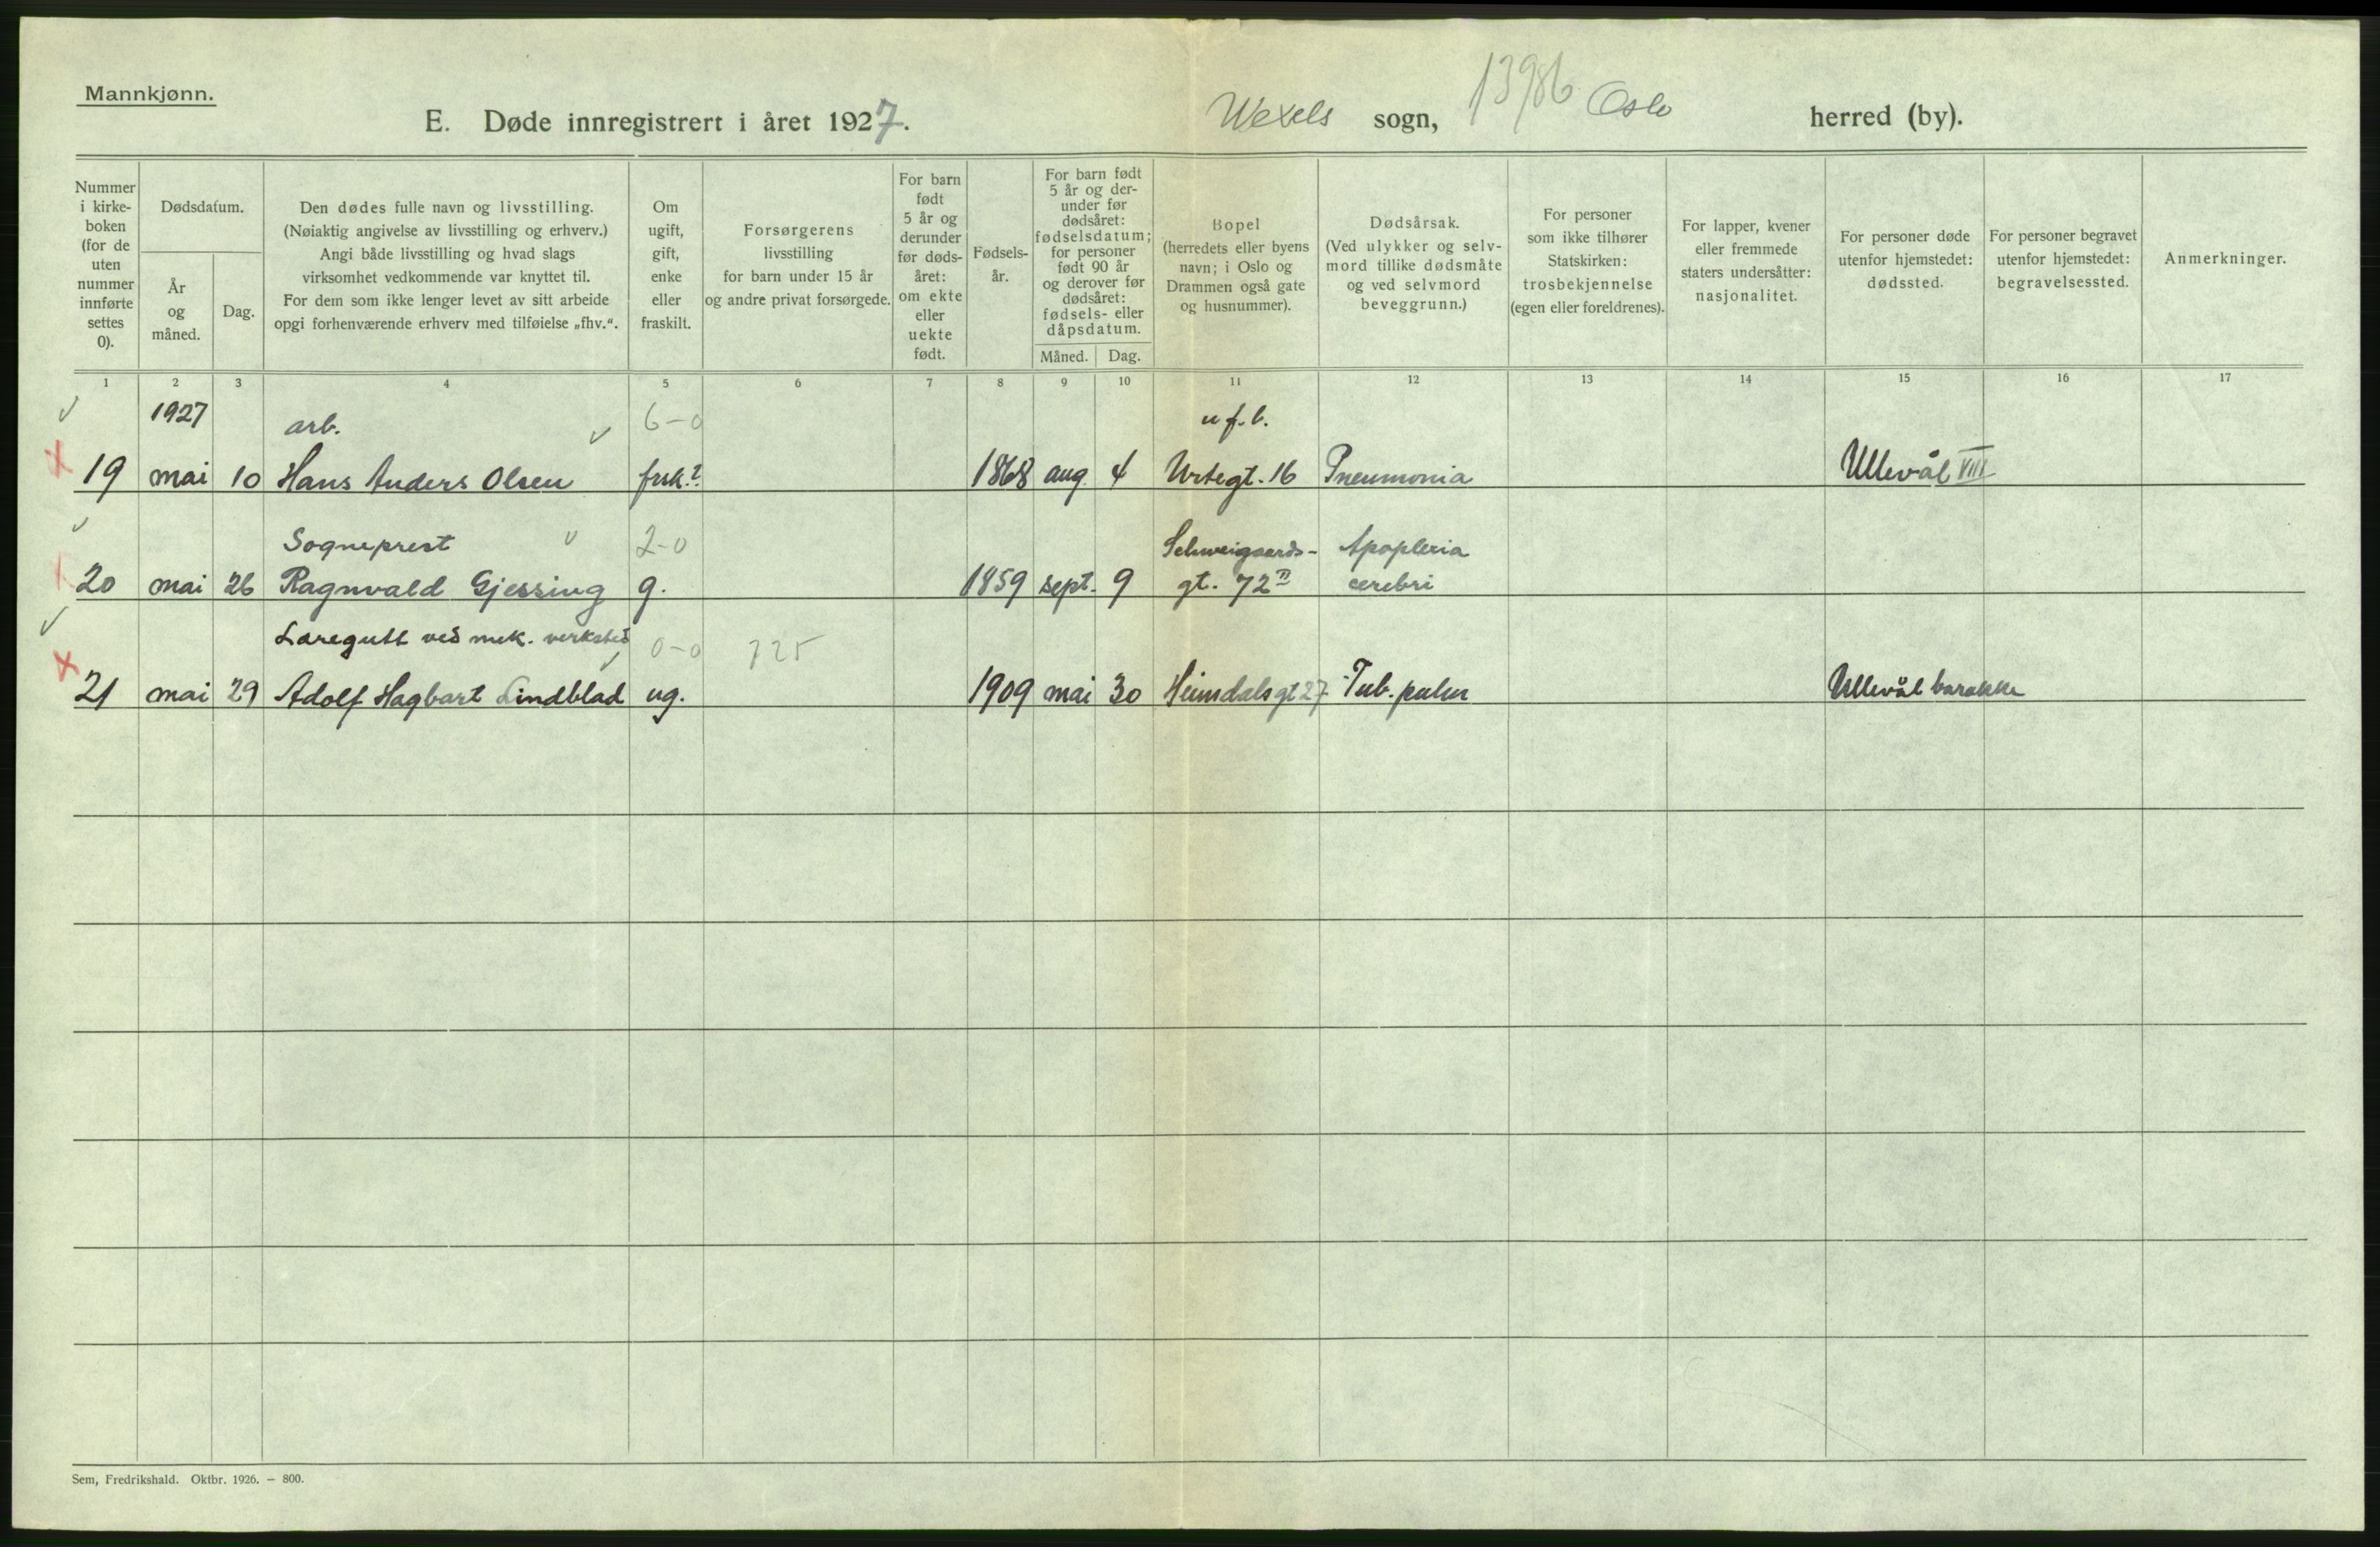 Mannkjønn.
E. Døde innregistrert i året 1927. Wexels sogn, 13986 Oslo herred (by).
Nummer i kirke- boken (for de uten nummer innførte settes 0).
Dødsdatum.
År og måned.
Dag.
Den dødes fulle navn og livsstilling.
(Nøiaktig angivelse av livsstilling og erhverv.)
Angi både livsstilling og hvad slags
virksomhet vedkommende var knyttet til.
For dem som ikke lenger levet av sitt arbeide
opgi forhenværende erhverv med tilføielse „fhv.“.
Om ugift, gift, enke eller fraskilt.
Forsørgerens
livsstilling
for barn under 15 år
og andre privat forsørgede.
For barn født 5 år og derunder før døds- året: om ekte eller uekte født.
Fødsels- år.
For barn født 5 år og der- under før dødsåret: fødselsdatum; for personer født 90 år og derover før dødsåret: fødsels- eller dåpsdatum.
Måned. Dag.
Bopel
(herredets eller byens
navn; i Oslo og
Drammen også gate
og husnummer).
Dødsårsak.
(Ved ulykker og selv-
mord tillike dødsmåte
og ved selvmord
beveggrunn.)
For personer
som ikke tilhører
Statskirken:
trosbekjennelse
(egen eller foreldrenes).
For lapper, kvener
eller fremmede
staters undersåtter:
nasjonalitet.
For personer døde
utenfor hjemstedet:
dødssted.
For personer begravet
utenfor hjemstedet:
begravelsessted.
Anmerkninger.
1 2 3 4 5 6 7 8 9 10 11 12 13 14 15 16 17
1927 arb. 6-0 u f. b.
19 mai 10 Hans Anders Olsen frsk.? 1868 aug. 4 Urtegt. 16 Pneumonia Ullevål VIII
Sogneprest 2-0 Schweigaards- Apoplexia
20 mai 26 Ragnvald Gjessing g. 1859 sept. 9 gt. 72 II cerebri
Læregutt ved mek. verksted 0-0 725
21 mai 29 Adolf Hagbart Lindblad ug. 1909 mai 30 Heimdalsgt 27 Tub. pulm Ullevål barakke
Sem, Fredrikshald. Oktbr. 1926. — 800.